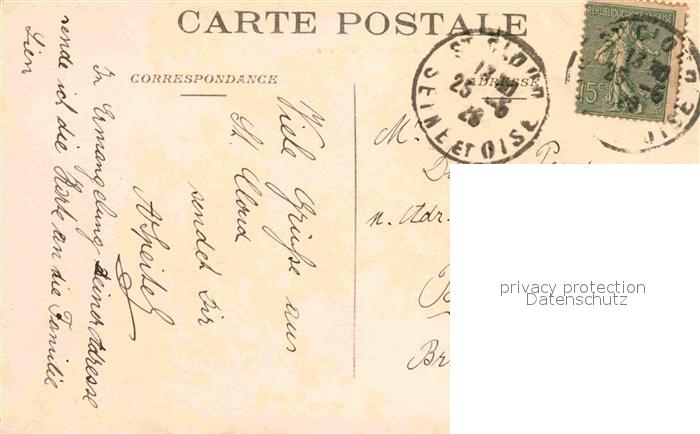 CARTE POSTALE
CORRESPONDANCE
ADRESSE
RÉPUBLIQUE FRANÇAISE
15c
ST CLOUD
13
25 - 6
26
SEINE ET OISE
Viele Grüße aus
St. Cloud
sendet Dir
ASpeitel
In Ermangelung Deiner Adresse
sende ich die Karte an die Familie
M.
n. Adr.
Br
privacy protection
Datenschutz